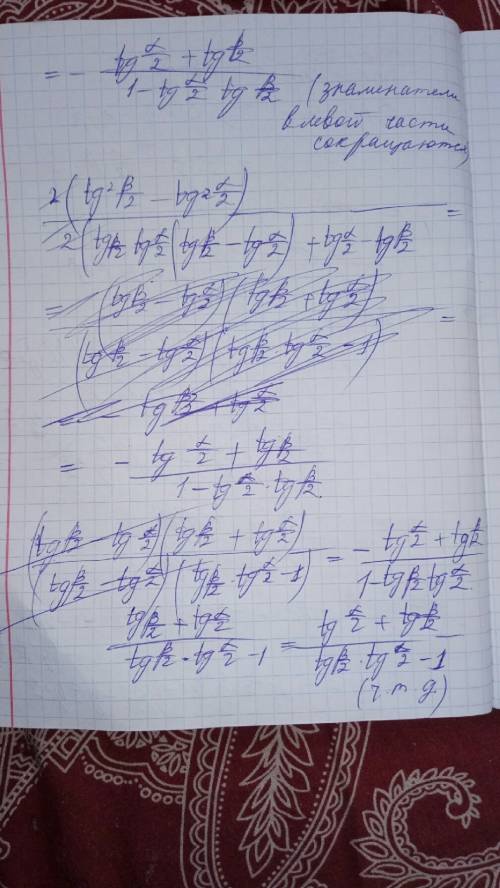 = - (tg α/2 + tg β/2) / (1 - tg α/2 tg β/2) (знаменатели
в левой части
сокращаются)
2(tg² β/2 - tg² α/2) / 2(tg β/2 tg α/2 (tg β/2 - tg α/2) + tg α/2 - tg β/2) =
= (tg β/2 - tg α/2)(tg β/2 + tg α/2) / (tg β/2 - tg α/2)(tg β/2 tg α/2 - 1) =
= - tg β/2 + tg α/2
= - (tg α/2 + tg β/2) / (1 - tg α/2 · tg β/2)
(tg β/2 - tg α/2)(tg β/2 + tg α/2) / (tg β/2 - tg α/2)(tg β/2 · tg α/2 - 1) = - (tg α/2 + tg β/2) / (1 - tg β/2 tg α/2)
(tg β/2 + tg α/2) / (tg β/2 · tg α/2 - 1) = (tg α/2 + tg β/2) / (tg β/2 · tg α/2 - 1)
(ч. т. д.)